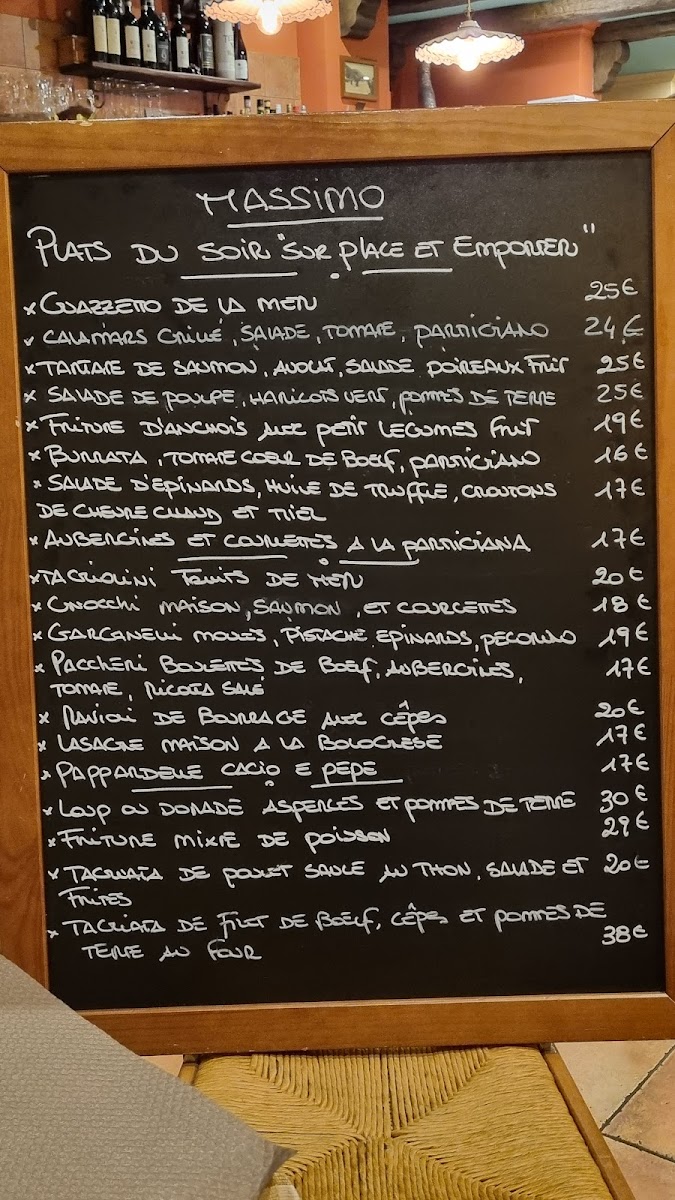 MASSIMO
PLATS DU SOIR "SUR PLACE ET EMPORTER"
x GUAZZETTO DE LA MER 25€
x CALAMARS GRILLÉ, SALADE, TOMATE, PARMIGIANO 24€
x TARTARE DE SAUMON, AVOCAT, SALADE POIREAUX FRIT 25€
x SALADE DE POULPE, HARICOTS VERT, POMMES DE TERRE 25€
x FRITURE D'ANCHOIS AUX PETIT LEGUMES FRIT 19€
x BURRATA, TOMATE COEUR DE BOEUF, PARMIGIANO 16€
x SALADE D'EPINARDS, HUILE DE TRUFFLE, CROUTONS 17€
DE CHEVRE CHAUD ET MIEL
x AUBERGINES ET COURGETTES A LA PARMIGIANA 17€
x TAGLIOLINI FRUITS DE MER 20€
x GNOCCHI MAISON, SAUMON, ET COURGETTES 18€
x GARGANELLI MOULES, PISTACHE, EPINARDS, PECORINO 19€
x PACCHERI BOULETTES DE BOEUF, AUBERGINES, 17€
TOMATE, RICOTA SALÉ
x RAVIOLI DE BOURRAGE AUX CÊPES 20€
x LASAGNE MAISON A LA BOLOGNESE 17€
x PAPPARDELLE CACIO E PEPE 17€
x LOUP OU DORADE ASPERGES ET POMMES DE TERRE 30€
x FRITURE MIXTE DE POISSON 29€
x TAGLIATA DE POULET SAUCE AU THON, SALADE ET 20€
FRITES
x TAGLIATA DE FILET DE BOEUF, CÊPES ET POMMES DE
TERRE AU FOUR 38€